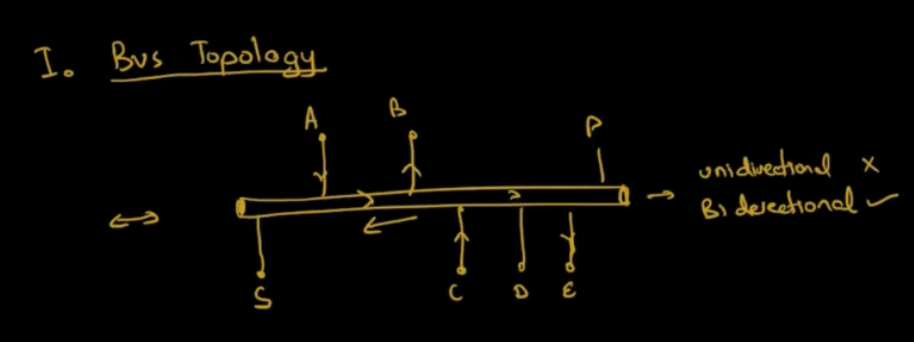 I. Bus Topology
A B P
unidirectional ×
Bidirectional ✓
S C D E